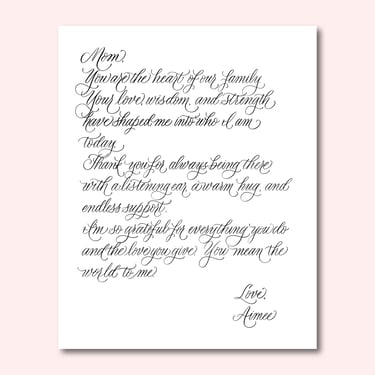 Mom,
You are the heart of our family.
Your love, wisdom, and strength
have shaped me into who I am
today.
Thank you for always being there
with a listening ear, a warm hug, and
endless support.
I'm so grateful for everything you do
and the love you give. You mean the
world to me.
Love,
Aimee